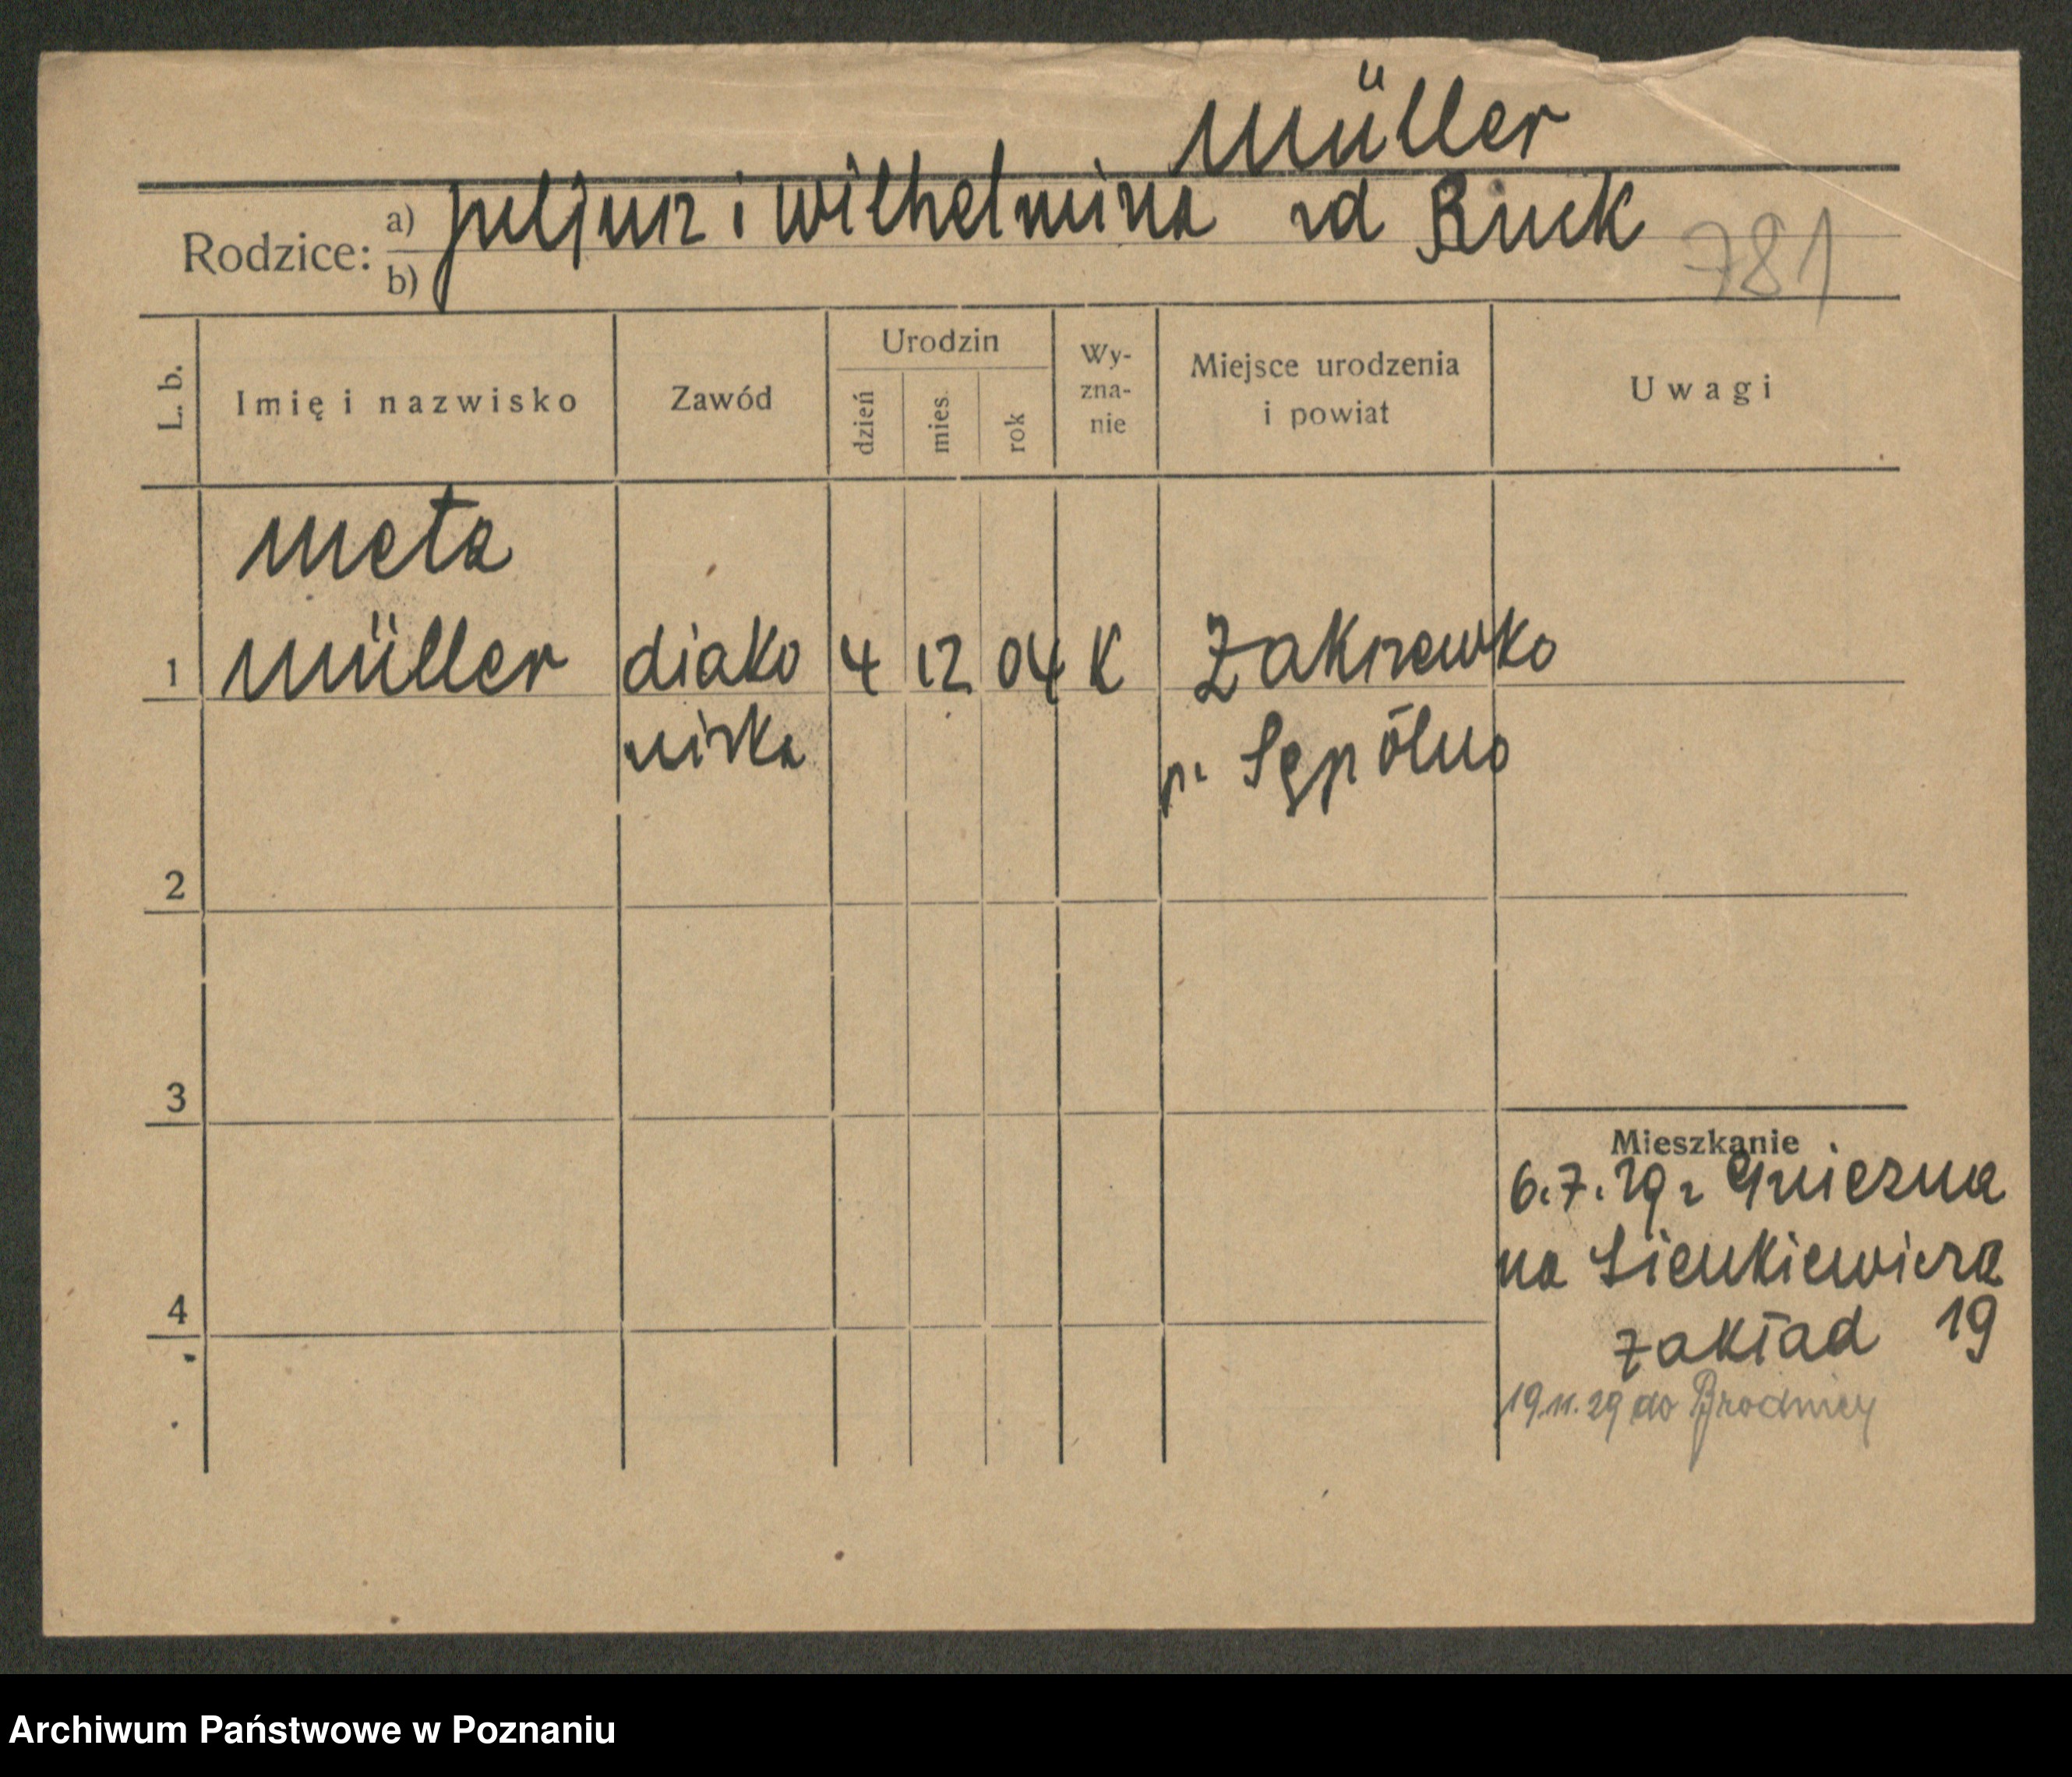 Müller
Rodzice: a) Juljusz i Wilhelmina zd Buck
b)
781
L. b. Imię i nazwisko Zawód Urodzin dzień mies. rok Wy-zna-nie Miejsce urodzenia i powiat Uwagi
Meta
1 Müller diako 4 12 04 K Zakrzewko
niska p. Sępólno
2
3
Mieszkanie
6.7.29 z Gniezna
na Sienkiewicza
4
zakład 19
19.11.29 do Brodnicy
Archiwum Państwowe w Poznaniu